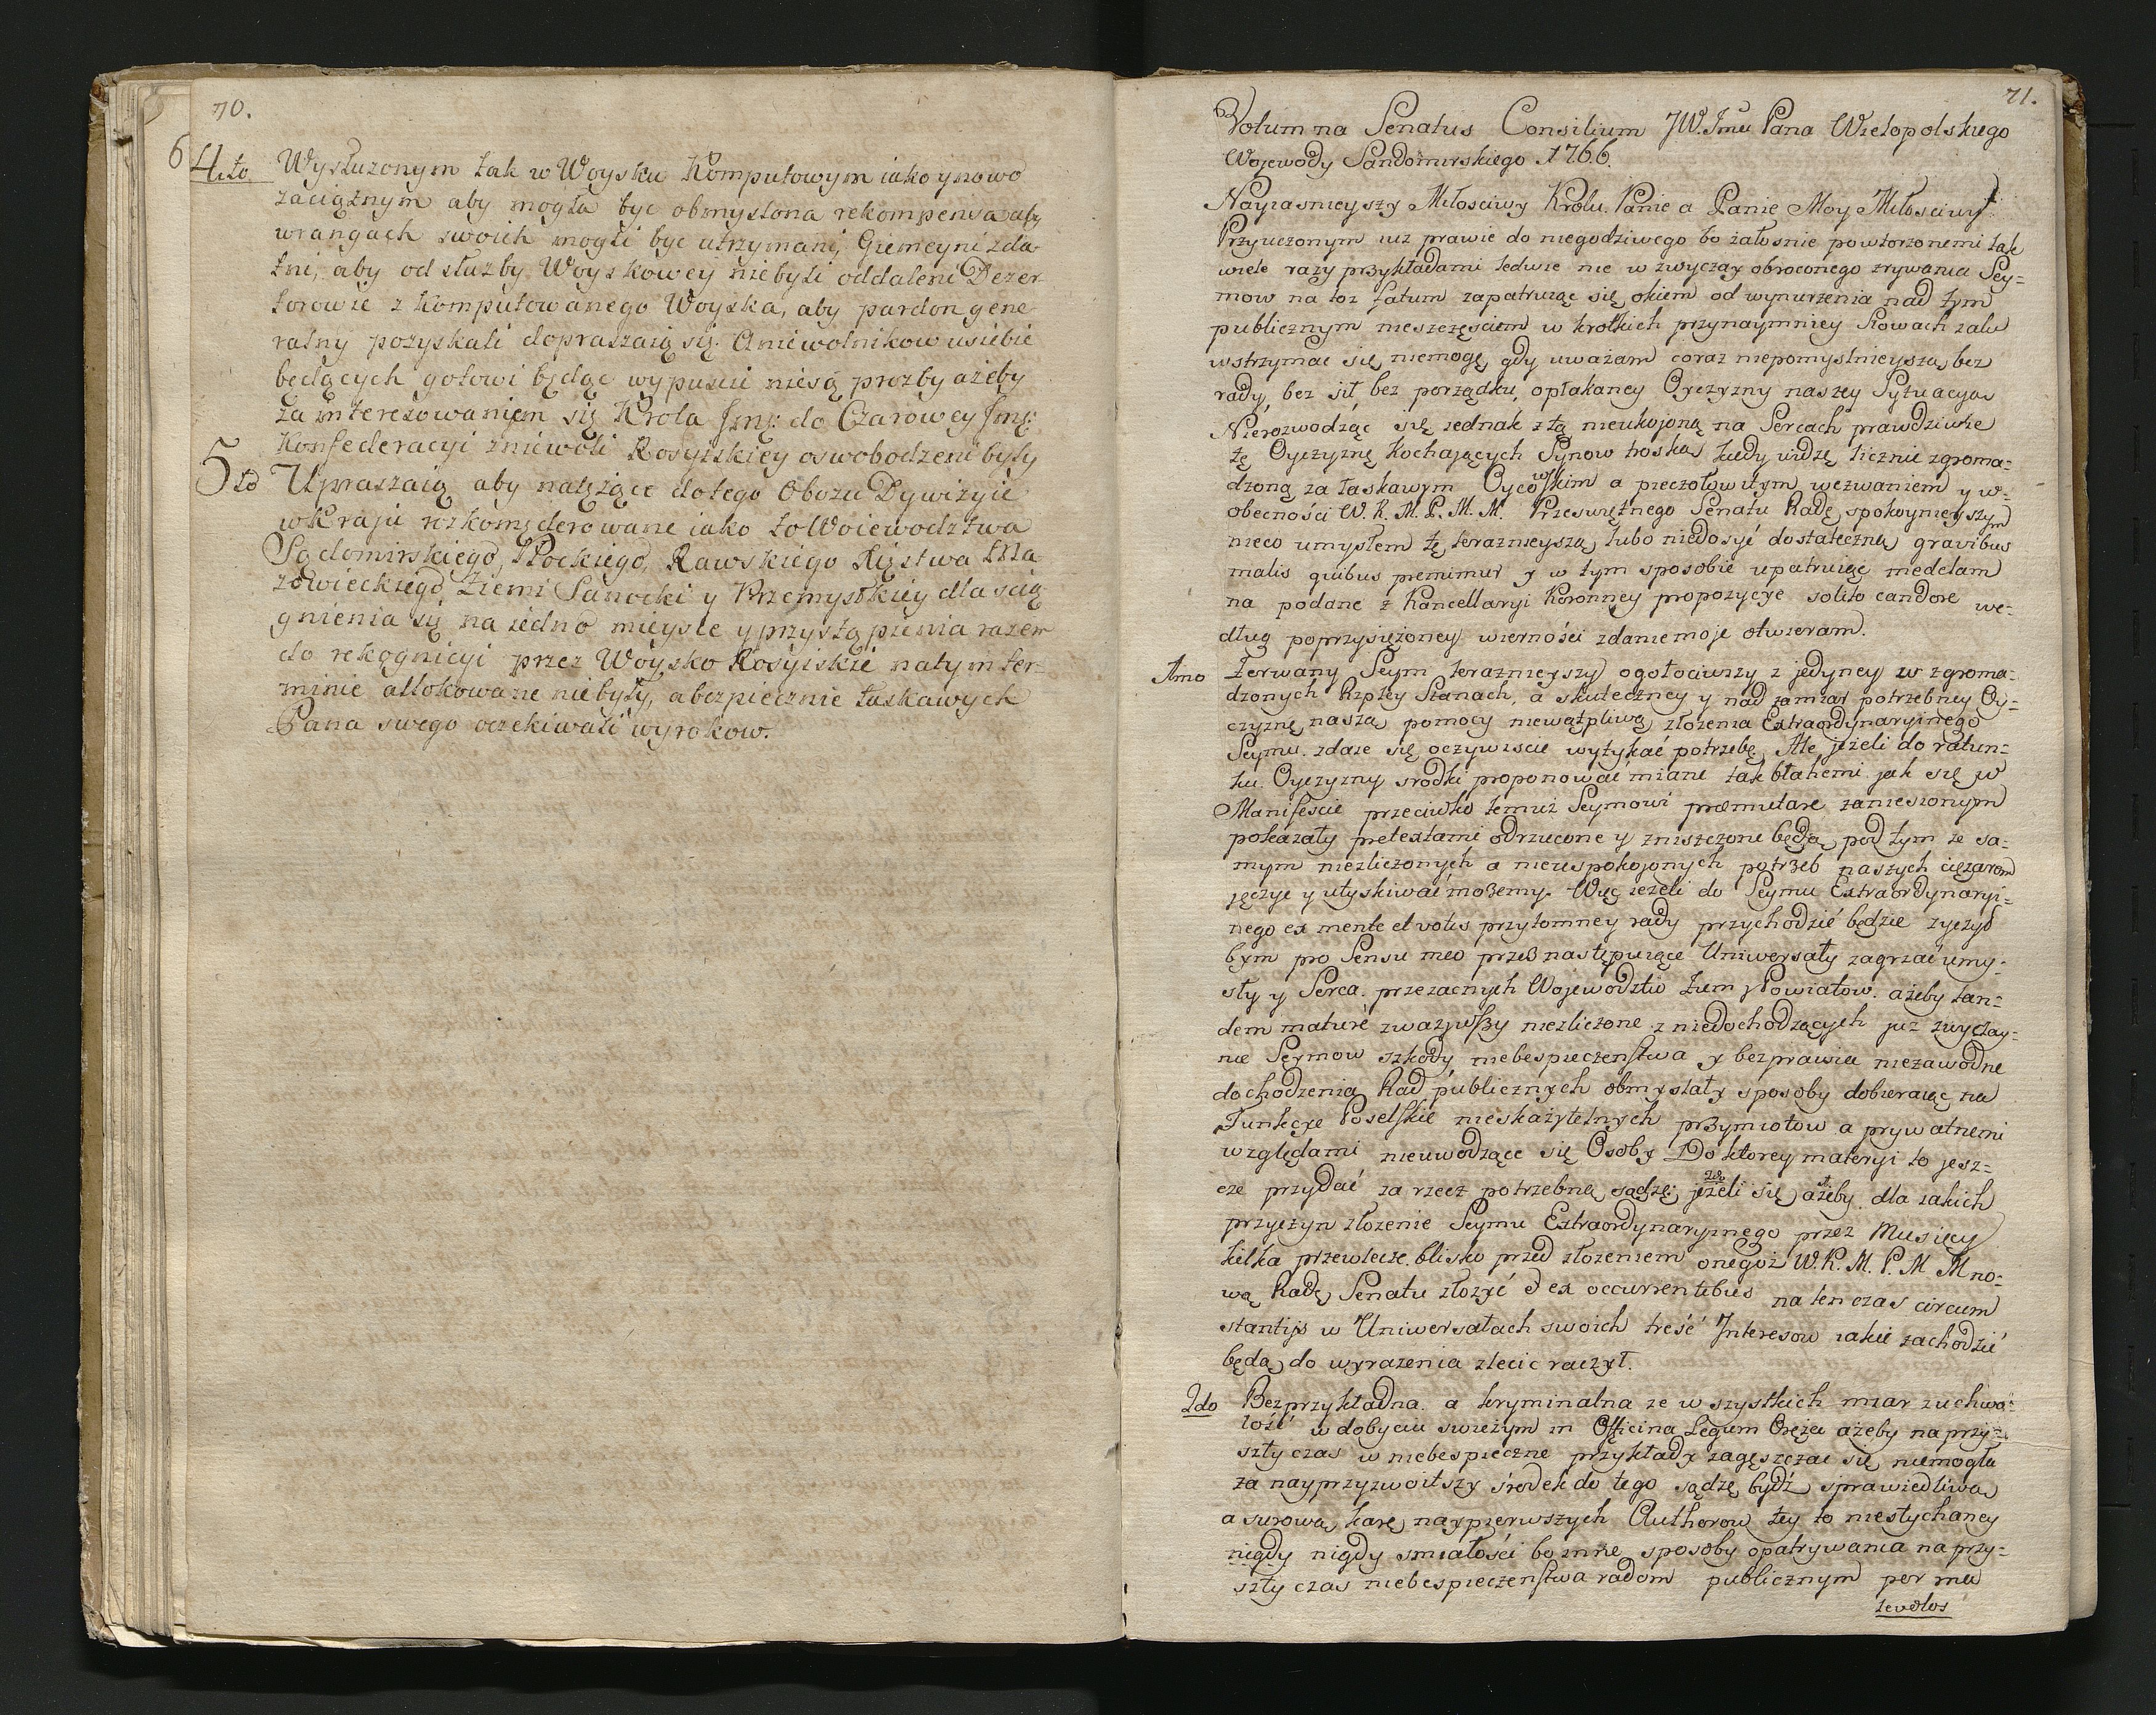 70.
6
4.to Wysłuzonym tak w Woysku Komputowym iako y nowo
zaciąznym aby mogła byc obmyslona rekompensa aby
w rangach swoich mogli byc utrzymani, Giemeyni zda-
tni, aby od słuzby Woyskowey niebyli oddaleni Dezer
torowie z Komputowanego Woyska, aby pardon gene
ralny pozyskali dopraszaią się. A niewolnikow u siebie
będących gotowi będąc wypuscic niosą prozby ażeby
za interesowaniem się Krola Jmę: do Czarowey Jmę:
Konfederacyi z niewoli Rosyiskiey oswobodzeni byli
5to Upraszaią aby nalężące do tego Obozu Dywizyie
w Kraju rozkomęderowane iako to Woiewodztwa
Sędomirskiego, Płockiego, Rawskiego Xięstwa Ma
zowieckiego Ziemi Sanocki y Przemyskiey dla scią
gnienia się na iedno mieysce y przystąpienia razem
do rekognicyi przez Woysko Rosyiskie na tym ter-
minie attokowane nie były, a bezpiecznie łaskawych
Pana swego oczekiwali wyrokow.
71.
Votum na Senatus Consilium JW. Jmci Pana Wielopolskiego
Wojewody Sandomirskiego 1766.
Nayiasnieyszy Miłosciwy Krolu. Panie a Panie Moy Miłosciwy
Przyuczonym iuz prawie do niegodziwego bo załosnie powtorzonemi tak
wiele razy przykładami ledwie nie w zwyczay obroconego zrywania Sey-
mow na toz fatum zapatruiąc się okiem od wynurzenia nad tym
publicznym nieszczęsciem w krotkich przynaymniey słowach zalu
wstrzymac się niemogę, gdy uważam coraz niepomyslnieyszą, bez
rady, bez sił bez porządku, opłakaney Oyczyzny naszey Sytuacyą
Nierozwodząc się iednak z tą nieukojoną na Sercach prawdziwie
tę Oyczyznę kochających Synow troską kiedy widzę licznie zgroma-
dzoną za łaskawym Oycowskim a pieczołowitym wezwaniem y w-
obecności W. K. M. P. M. M. Prześwietnego Senatu Radę, spokoynieyszym
nieco umysłem tę terazniejszą lubo niedosyć dostateczną gravibus
malis quibus premimur y w tym sposobie upatruiąc medelam
na podane z Kancellaryi Koronney propozycye solito candore we-
dług poprzysiężoney wierności zdanie moje otwieram.
1mo Zerwany Seym terazniejszy ogołociwszy z jedyney w zgroma-
dzonych Rzpltey Stanach, a skuteczney y nad zamiar potrzebney Oy-
czyznę naszą pomocy niewątpliwą złożenia Extraordynaryinego
Seymu zdaie się oczywiscie wytykać potrzebę. Ale jeżeli do ratun-
ku Oyczyzny srodki proponować miane tak błahemi jak się w
Manifescie przeciwko temuż Seymowi præmutare zaniesionym
pokazały pretextami odrzucone y zniszczone będą, pod tym ze sa-
mym niezliczonych a nieuspokojonych potrzeb naszych ciężarem
jęczyc y utyskiwać możemy. Więc ieżeli do Seymu Extraordynaryi-
nego ex mente et votis przytomney rady przychodzić będzie zyczył
bym pro Sensu meo przez następuiące Uniwersały zagrzać umy-
sły y Serca przezacnych Wojewodztw Ziem y Powiatow. ażeby tan-
dem maturé zwazywszy niezliczone z niedochodzących juz zwyczay-
nie Seymow szkody niebespieczenstwa y bezprawia niezawodne
dochodzenia Rad publicznych obmyslały sposoby dobieraiąc na
Funkcye Poselskie nieskazytelnych przymiotow a prywatnemi
względami nieuwodzące się Osoby Do ktorey materyi to jesz-
cze przydać za rzecz potrzebną sądzę; jeżeli się ażeby dla iakich
przyczyn złożenie Seymu Extraordynaryinego przez Miesięcy
kilka przewlecze. blisko przed złożeniem onegoż W. K. M. P. M. M no-
wą Radę Senatu złożyć et ex occurrentibus na ten czas circum
stantijs w Uniwersałach swoich treść Interesow iakie zachodzić
będą do wyrazenia zlecic raczył.
2do Bezprzykładna a kryminalna ze wszystkich miar zuchwa-
łość w dobyciu swieżym in Officina Legum Oręża ażeby na przy-
szły czas w niebespieczne przykłady zagęszczac się niemogła
za nayprzyzwoitszy środek do tego sądzę bydź sprawiedliwą
a surową karę naypierwszych Authorow tey to niesłychaney
nigdy nigdy smiałości bo inne sposoby opatrywania na przy-
szły czas niebespieczenstwa radom publicznym per me